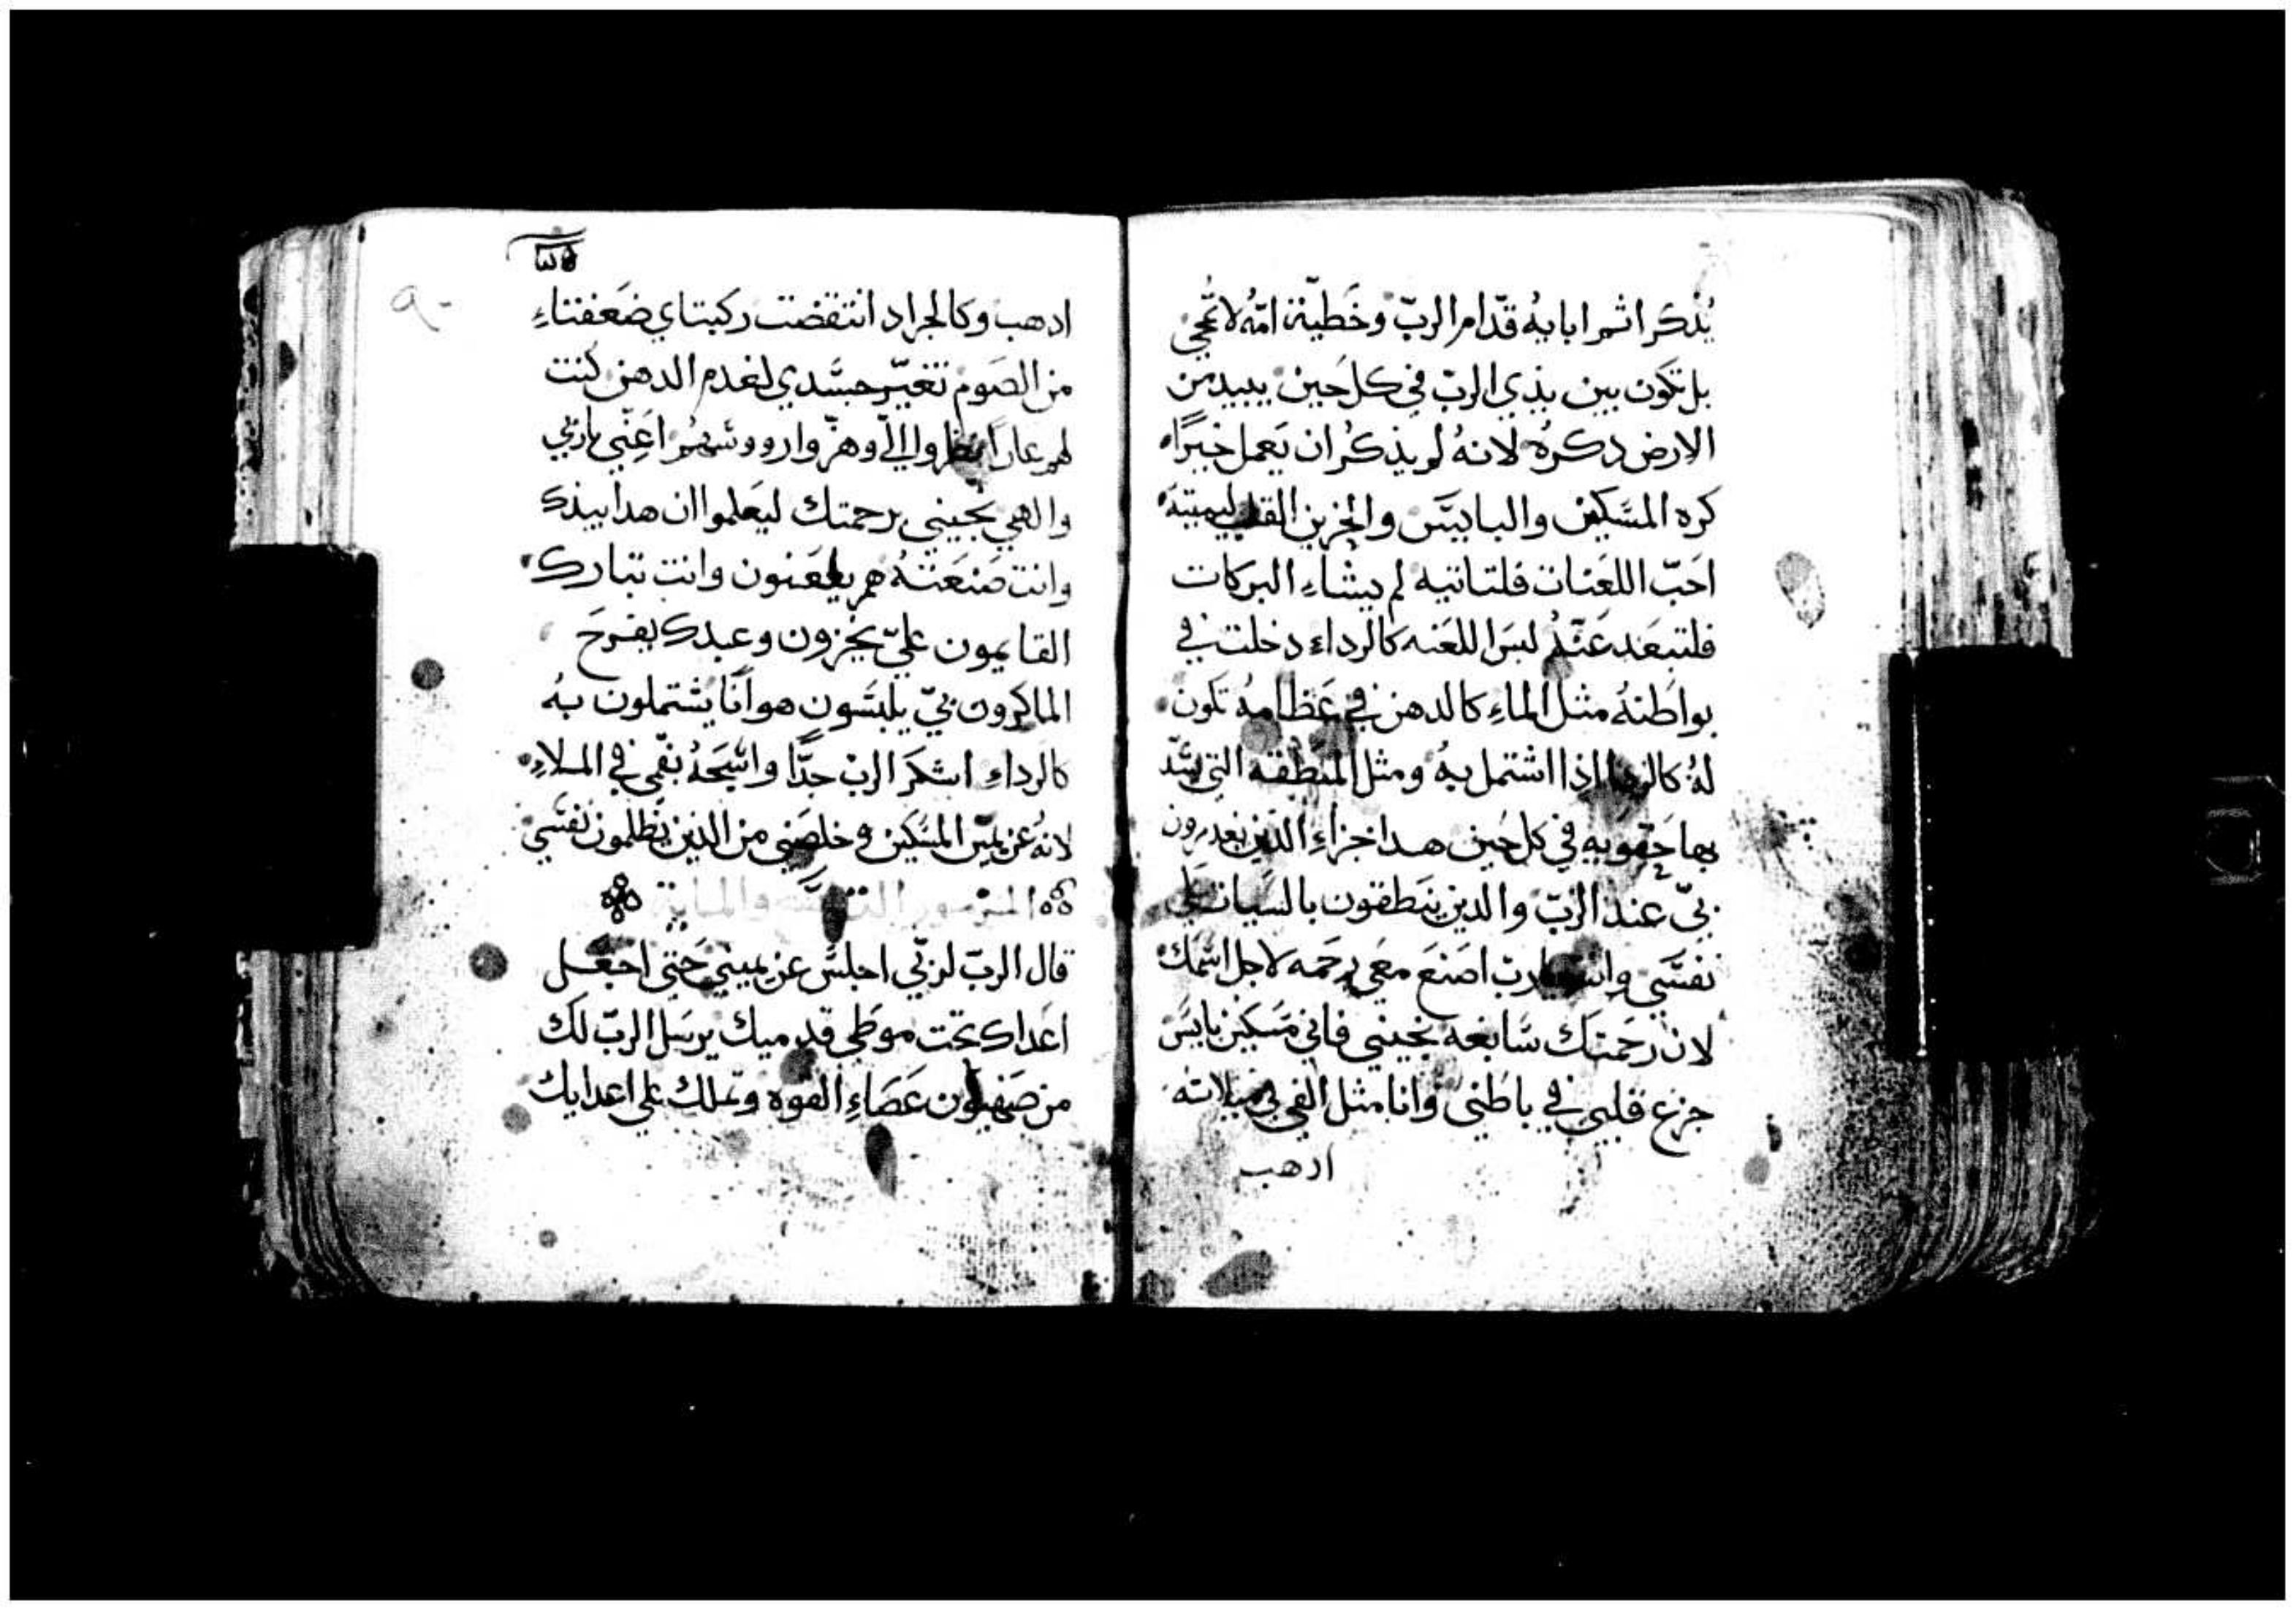 يُذكر اثم ابايهُ قدّام الربّ وخَطيّة امّهُ لا تُمحي
بل تكون بين يذي الربّ في كل حَين يبيد من
الارض ذكرهُ لانهُ لم يذكُر ان يَعمل خيرًا
كره المسَكين والبايسَ والحزين القلب ليميته
احَبّ اللعَنات فلتاتيه لم يشاءِ البركات
فلتبعَد عَنهُ لبسَ اللعَنه كالرداء دخلت في
بواطنهُ مثل الماءِ كالدهن في عَظامهُ تكون
لهُ كالردا اذا اشتمل بهُ ومثل المنطقه التي يشدّ
بها حَقوَيه في كل حَين هدا جزاءِ الذين يغدرون
بيّ عند الربّ والدين ينطقون بالسَيات علي
نفسَي وانت يارب اصنعَ معَي رحَمه لاجل اسَمك
لان رحَمتك سَابغه نجيني فاني مسَكين بايسَ
جزع قلبي في باطني وانا مثل الفي في ميلاته
ادهب
ادهب وكالجراد انتقضت ركبتاي ضعَفتاءِ
من الصَوم تغيّر جسَدي لعدم الدهن كُنت
لهم عارًا نظروا اليّ وهزّوا رووسَهُم اعَنّي ياربّي
والهي نجيني برحمتك ليعَلموا ان هدا بيذك
وانت صَنعَتهُ هم يلعَنون وانت تبارك
القايمون عليّ يخزون وعبدك يفرحَ
الماكرون بيّ يلبسَون هوانًا يشتملون بهُ
كالرداءِ اشكرَ الربّ جدًّا واسَبحَهُ بفمّي في الملاءِ
لانهُ عن يميّن المسَكين وخلصَني من الذين يظلمون نفسَي
المزمور التاسَعه والمايه
قال الربّ لربّي اجلسَ عن يميني حَتي اجعَل
اعَداك تحَت موطي قدميك يرسَل الربّ لك
من صَهيون عَصَاءِ القوه وتملك علي اعدايك